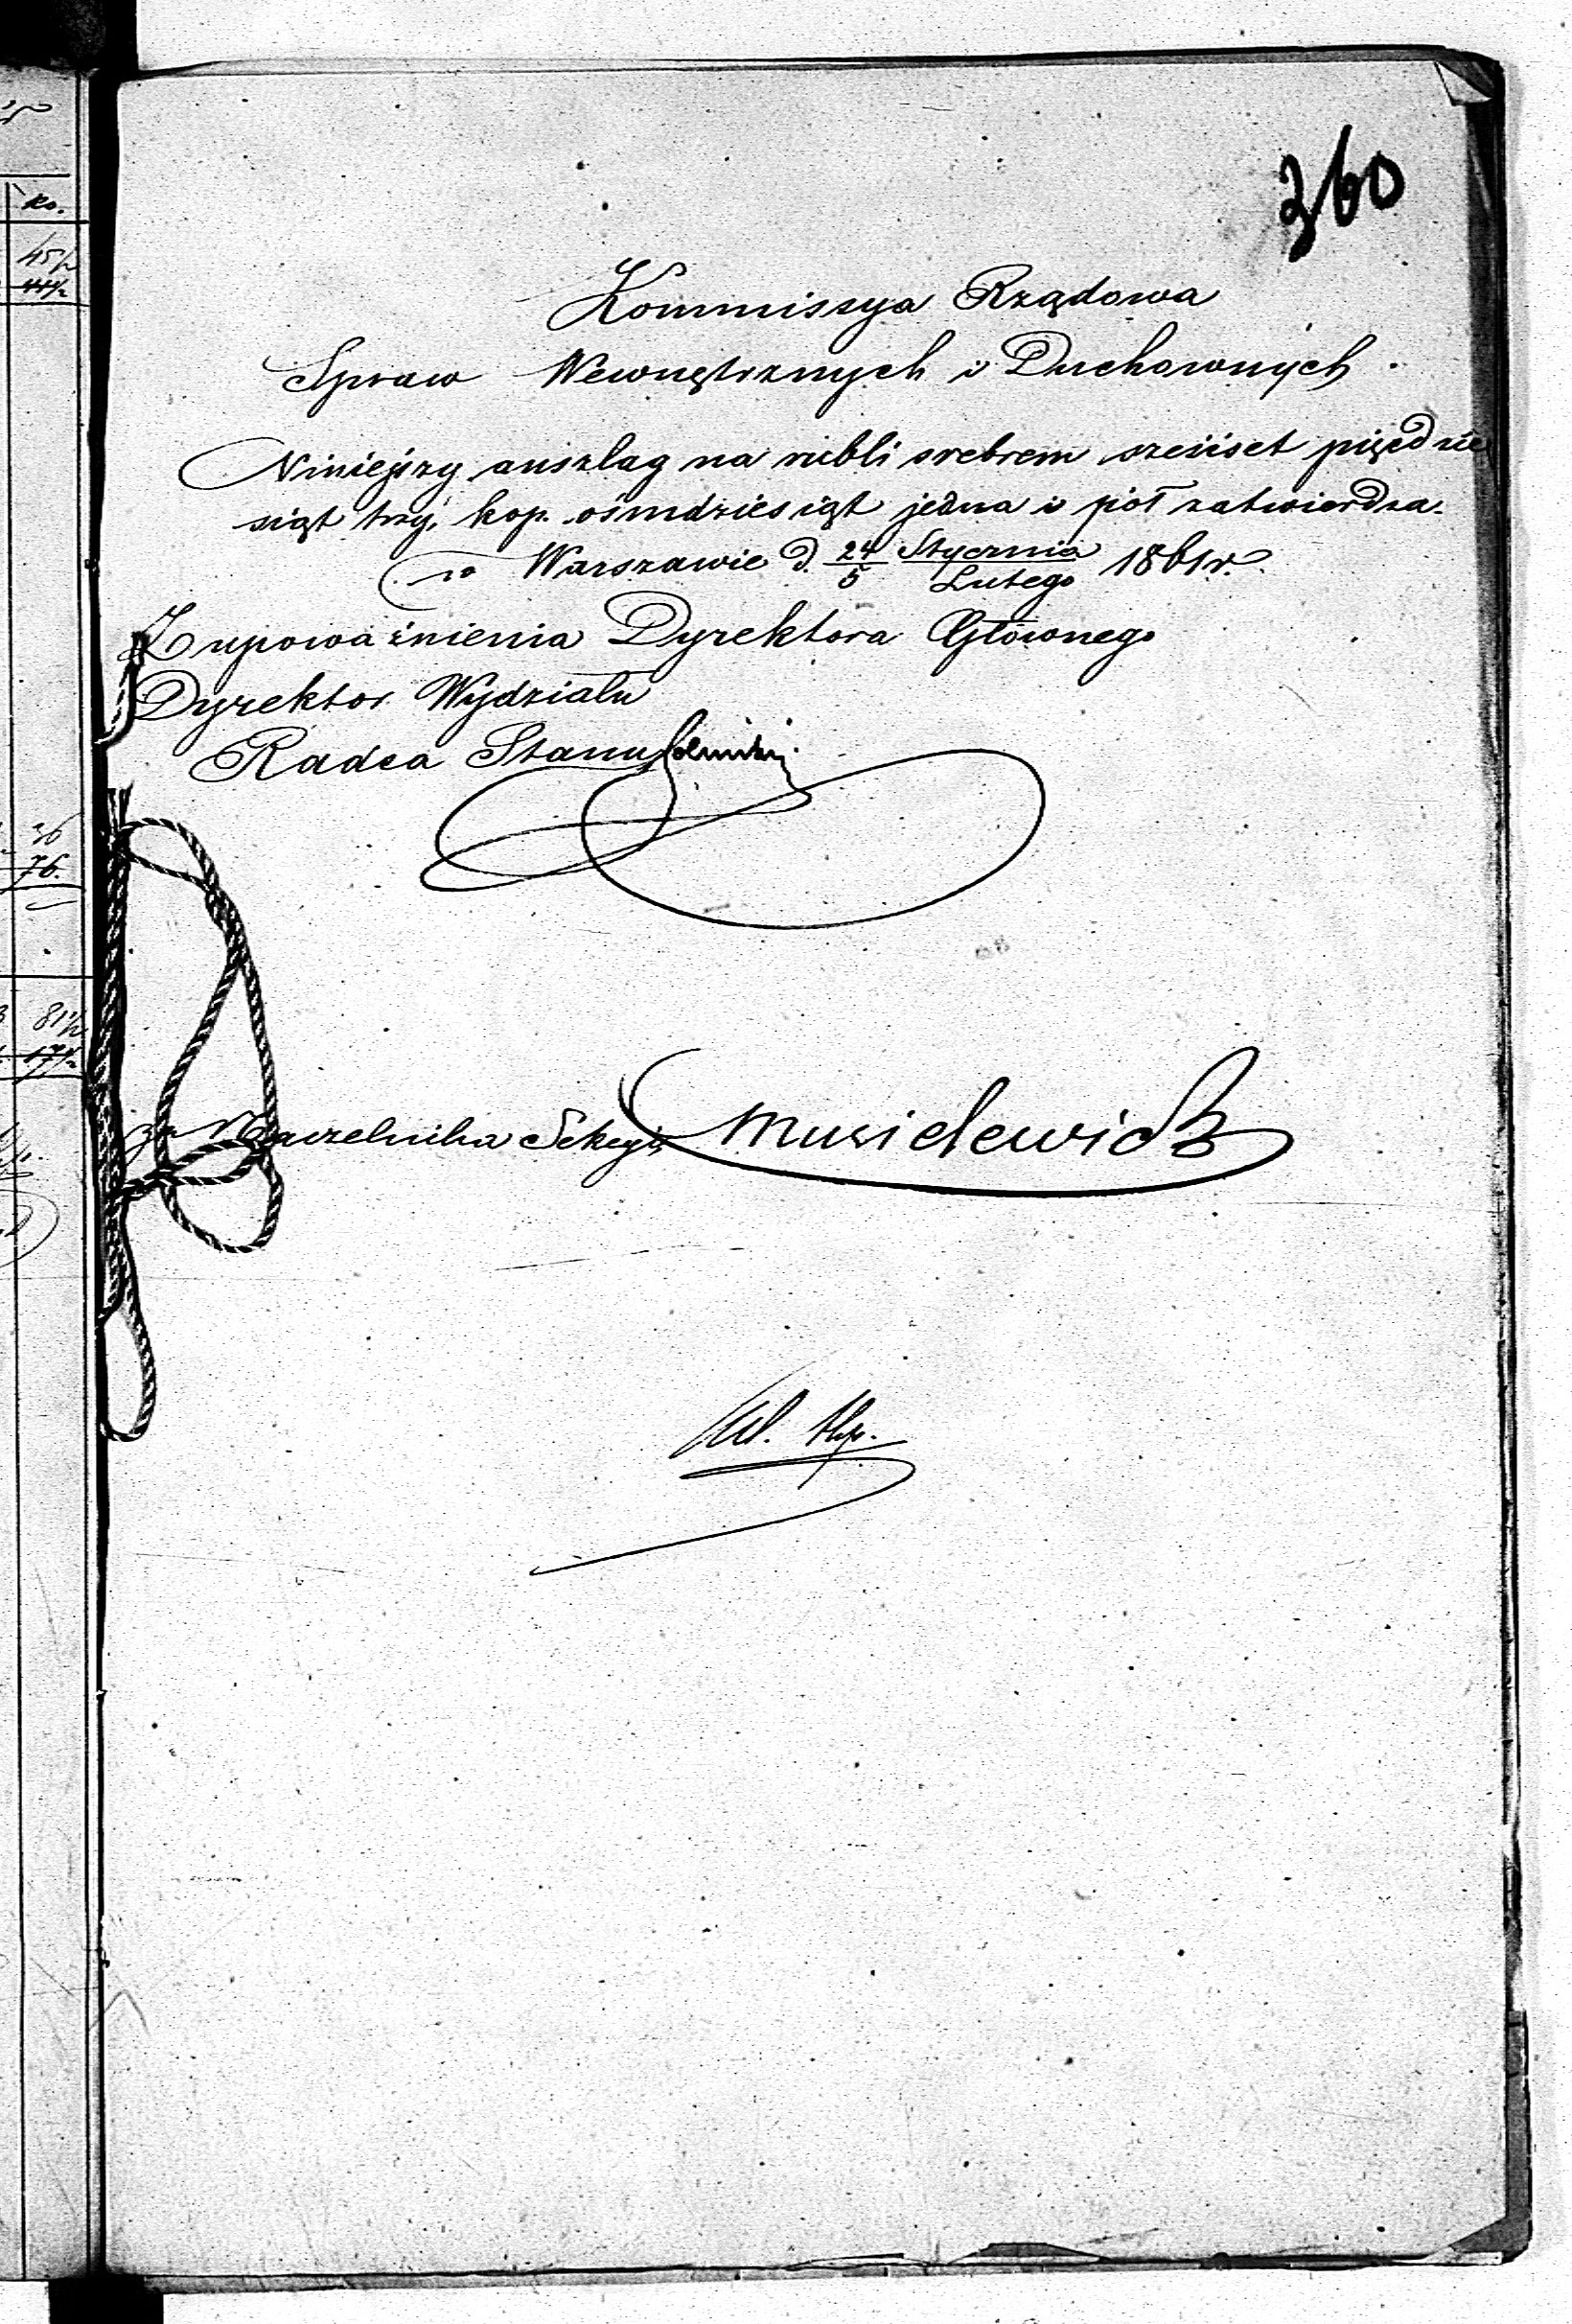 360
Kommissya Rządowa
Spraw Wewnętrznych i Duchownych.
Niniejszy anszlag na rubli srebrem sześćset pięćdzie
siąt trzy, kop. ośmdziesiąt jedna i pół zatwierdza.
w Warszawie d. 24/5 Stycznia/Lutego 1861 r.
Z upoważnienia Dyrektora Głównego
Dyrektor Wydziału
Radca Stanu
za Naczelnika Sekcyi Musielewicz
ko.
45½
44½
36
76.
81½
17½